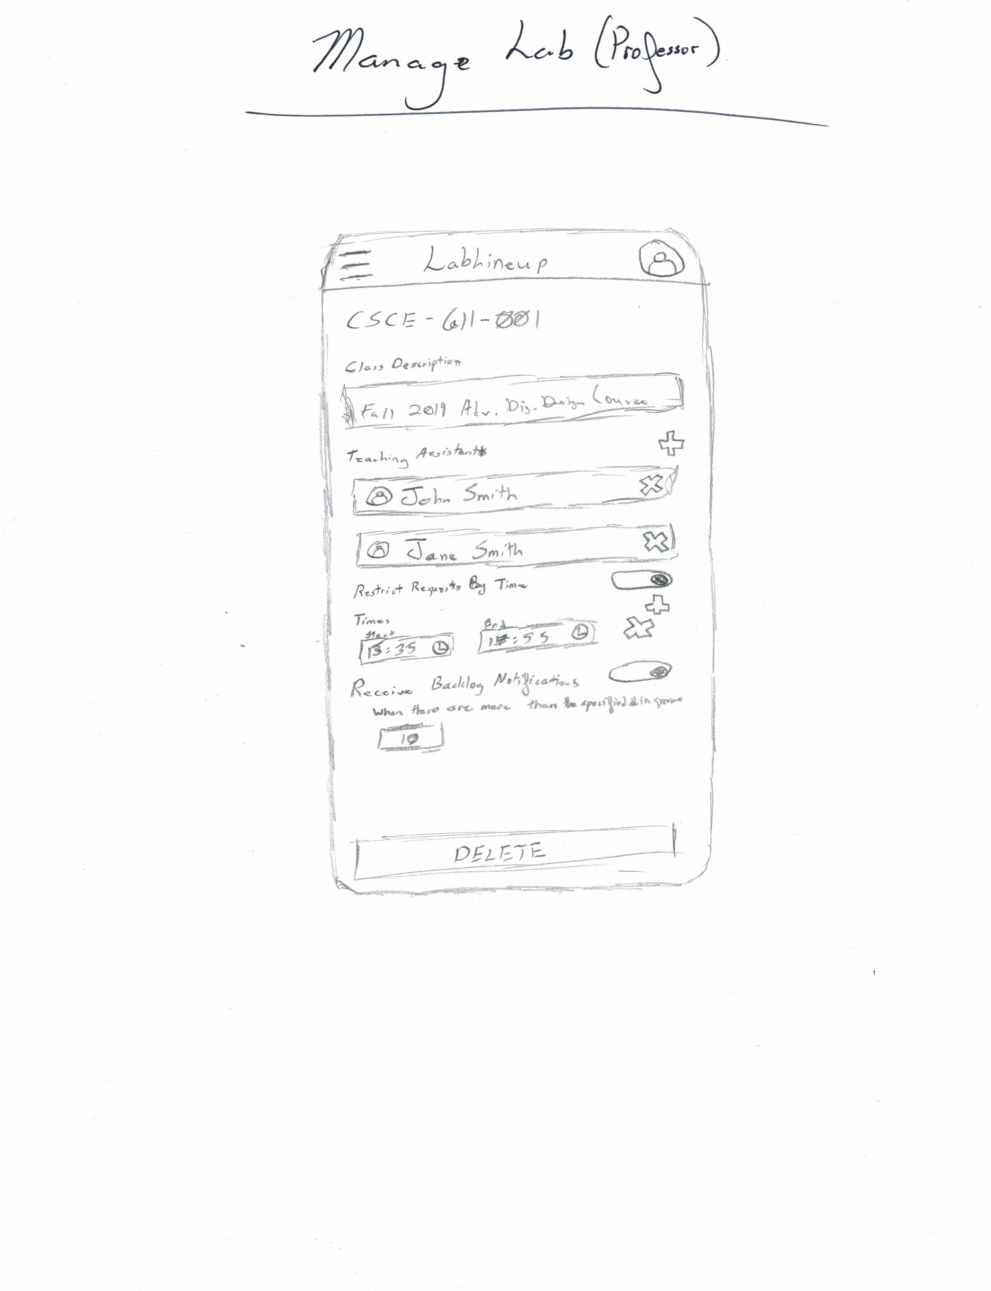 Manage Lab (Professor)
LabLineup
CSCE-611-001
Class Description
Fall 2019 Adv. Dig. Design Course
Teaching Assistants
John Smith
Jane Smith
Restrict Requests By Time
Times
Start
End
:35
:55
Receive Backlog Notifications
When there are more than the specified # in queue
10
DELETE